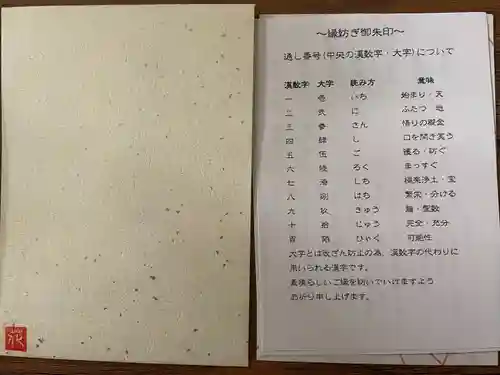 ～縁紡ぎ御朱印～
通し番号(中央の漢数字・大字)について
漢数字 大字 読み方 意味
一 壱 いち 始まり・天
二 弐 に ふたつ 地
三 参 さん 悟りの概念
四 肆 し 口を開き笑う
五 伍 ご 護る・防ぐ
六 陸 ろく まっすぐ
七 漆 しち 極楽浄土・宝
八 捌 はち 繁栄・分ける
九 玖 きゅう 龍・聖数
十 拾 じゅう 完全・充分
百 陌 ひゃく 可能性
大字とは改ざん防止の為、漢数字の代わりに
用いられる漢字です。
素晴らしいご縁を紡いでいけますよう
お祈り申し上げます。